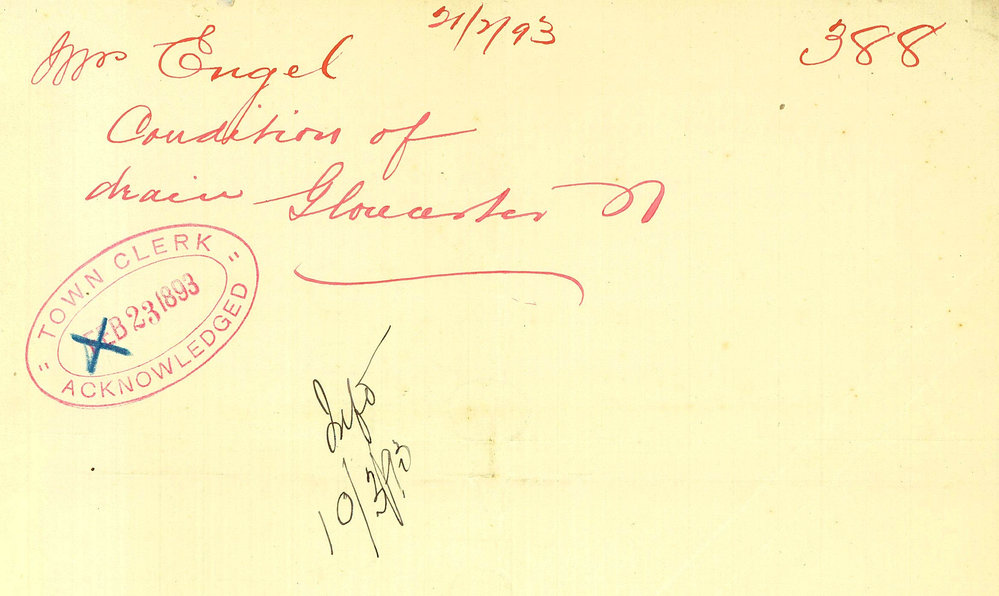 21/2/93
388
Mrs Engel
Condition of
drain Gloucester
" TOWN CLERK "
FEB 23 1893
ACKNOWLEDGED
X
Info
10/3/93